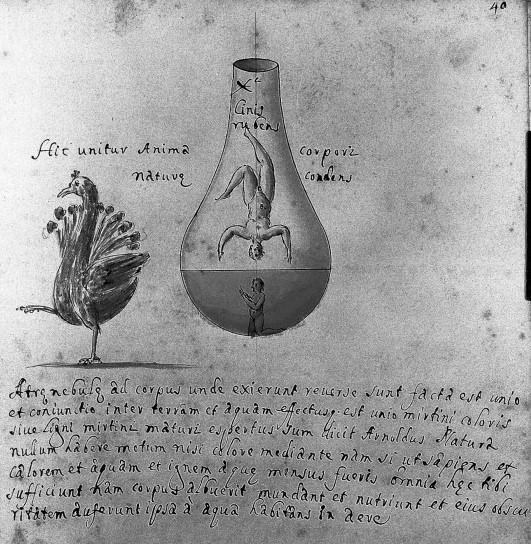 40
Cinis
rubens
Hic unitur Anima corpori
naturę condens
Atrę nebulę ad corpus unde exierunt reverse sunt facta est unio
et coniunctio inter terram et aquam effectusq. est unio mirtini coloris
siue ligni mirtini maturi expertus sum dicit Arnoldus Natura
nulum habere motum nisi calore mediante nam si ut sapiens et
calorem et aquam et ignem aquę mensus fueris omnia hęc tibi
sufficiunt nam corpus albuerit mundant et nutriunt et eius obscu
ritatem auferunt ipsa a aqua habitans in aere